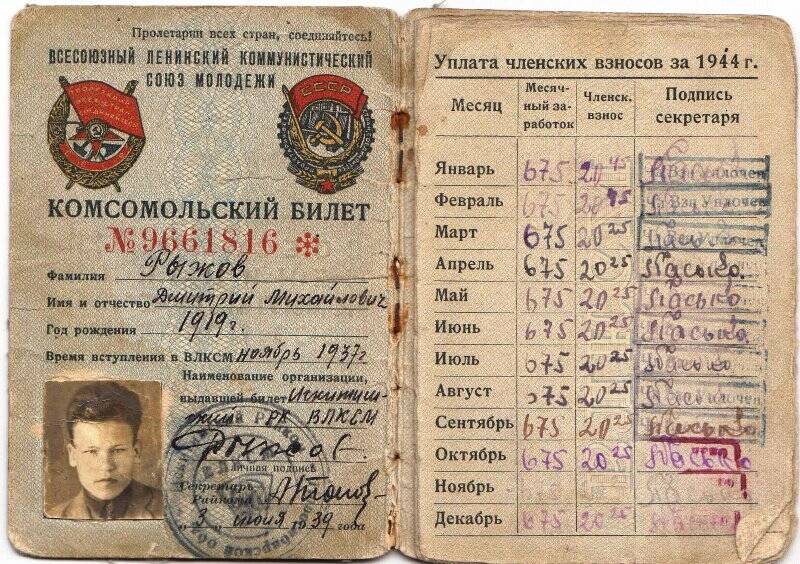 Пролетарии всех стран, соединяйтесь!
ВСЕСОЮЗНЫЙ ЛЕНИНСКИЙ КОММУНИСТИЧЕСКИЙ
СОЮЗ МОЛОДЕЖИ
СССР
КОМСОМОЛЬСКИЙ БИЛЕТ
№ 9661816 *
Фамилия Рыжов
Имя и отчество Дмитрий Михайлович
Год рождения 1919г.
Время вступления в ВЛКСМ ноябрь 1937г
Наименование организации,
выдавшей билет
РК ВЛКСМ
Личная подпись
Секретарь
Райкома
"3" июня 1939 года
Уплата членских взносов за 1944 г.
Месяц Месяч- ный за- работок Членск. взнос Подпись секретаря
Январь 675 20 45 Взн Уплочен
Февраль 675 20 45 Взн Уплочен
Март 675 20 25 Уплочен
Апрель 675 20 25 Пасько
Май 675 20 25 Пасько
Июнь 675 20 25 Пасько
Июль 675 20 25 Пасько
Август 675 20 25 Пасько
Сентябрь 675 20 25 Пасько
Октябрь 675 20 25 Пасько
Ноябрь
Декабрь 675 20 25